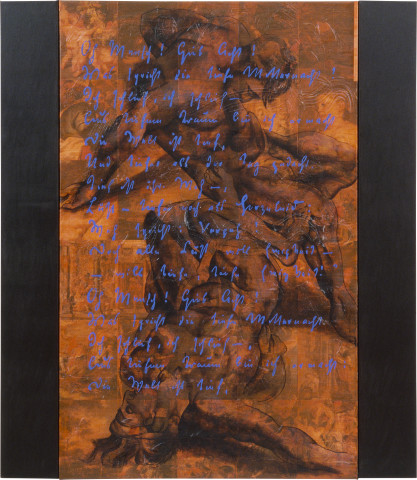 O Mensch! Gib Acht!
Was spricht die tiefe Mitternacht?
Ich schlief, ich schlief —
Aus tiefem Traum bin ich erwacht
Die Welt ist tief,
Und tiefer als der Tag gedacht.
Tief ist ihr Weh —,
Lust — tiefer noch als Herzeleid:
Weh spricht: Vergeh!
Doch alle Lust will Ewigkeit —
— will tiefe, tiefe Ewigkeit!
O Mensch! Gib Acht!
Was spricht die tiefe Mitternacht?
Ich schlief, ich schlief —,
Aus tiefem Traum bin ich erwacht:
Die Welt ist tief,